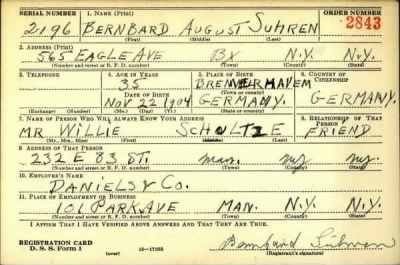 SERIAL NUMBER 1. NAME (Print) ORDER NUMBER
2196 BERNBARD AUGUST SUHREN 2843
(First) (Middle) (Last)
2. ADDRESS (Print)
565 EAGLE AVE BX N.Y. N.Y.
(Number and street or R. F. D. number) (Town) (County) (State)
3. TELEPHONE 4. AGE IN YEARS 5. PLACE OF BIRTH 6. COUNTRY OF CITIZENSHIP
35 BREMERHAVEN
DATE OF BIRTH (Town or county)
NOV 22 1904 GERMANY. GERMANY.
(Exchange) (Number) (Mo.) (Day) (Yr.) (State or country)
7. NAME OF PERSON WHO WILL ALWAYS KNOW YOUR ADDRESS 8. RELATIONSHIP OF THAT PERSON
MR WILLIE SCHULTZE FRIEND
(Mr., Mrs., Miss) (First) (Middle) (Last)
9. ADDRESS OF THAT PERSON
232 E 83 ST. Man. NY NY.
(Number and street or R. F. D. number) (Town) (County) (State)
10. EMPLOYER'S NAME
DANIELS & CO.
11. PLACE OF EMPLOYMENT OR BUSINESS
101 PARK AVE MAN. N.Y. N.Y.
(Number and street or R. F. D. number) (Town) (County) (State)
I AFFIRM THAT I HAVE VERIFIED ABOVE ANSWERS AND THAT THEY ARE TRUE.
REGISTRATION CARD
D. S. S. Form 1 (over) 16—17105 Bernhard Suhren
(Registrant's signature)